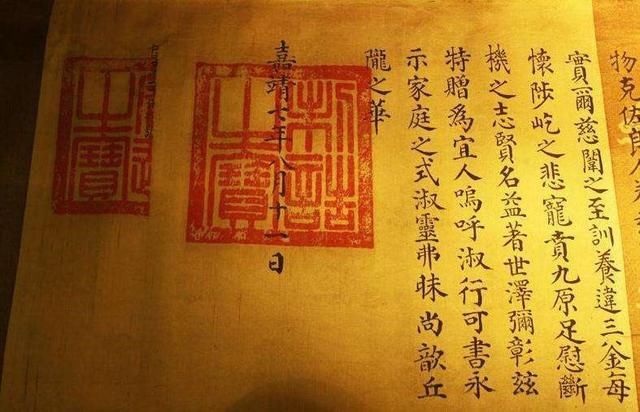 物克佐
實爾慈闈之至訓養違三釜每
懷陟屺之悲寵賁九原足慰斷
機之志賢名益著世澤彌彰玆
特贈為宜人嗚呼淑行可書永
示家庭之式淑靈弗昧尚歆丘
隴之華
嘉靖七年八月十一日
制誥之寶
之寶